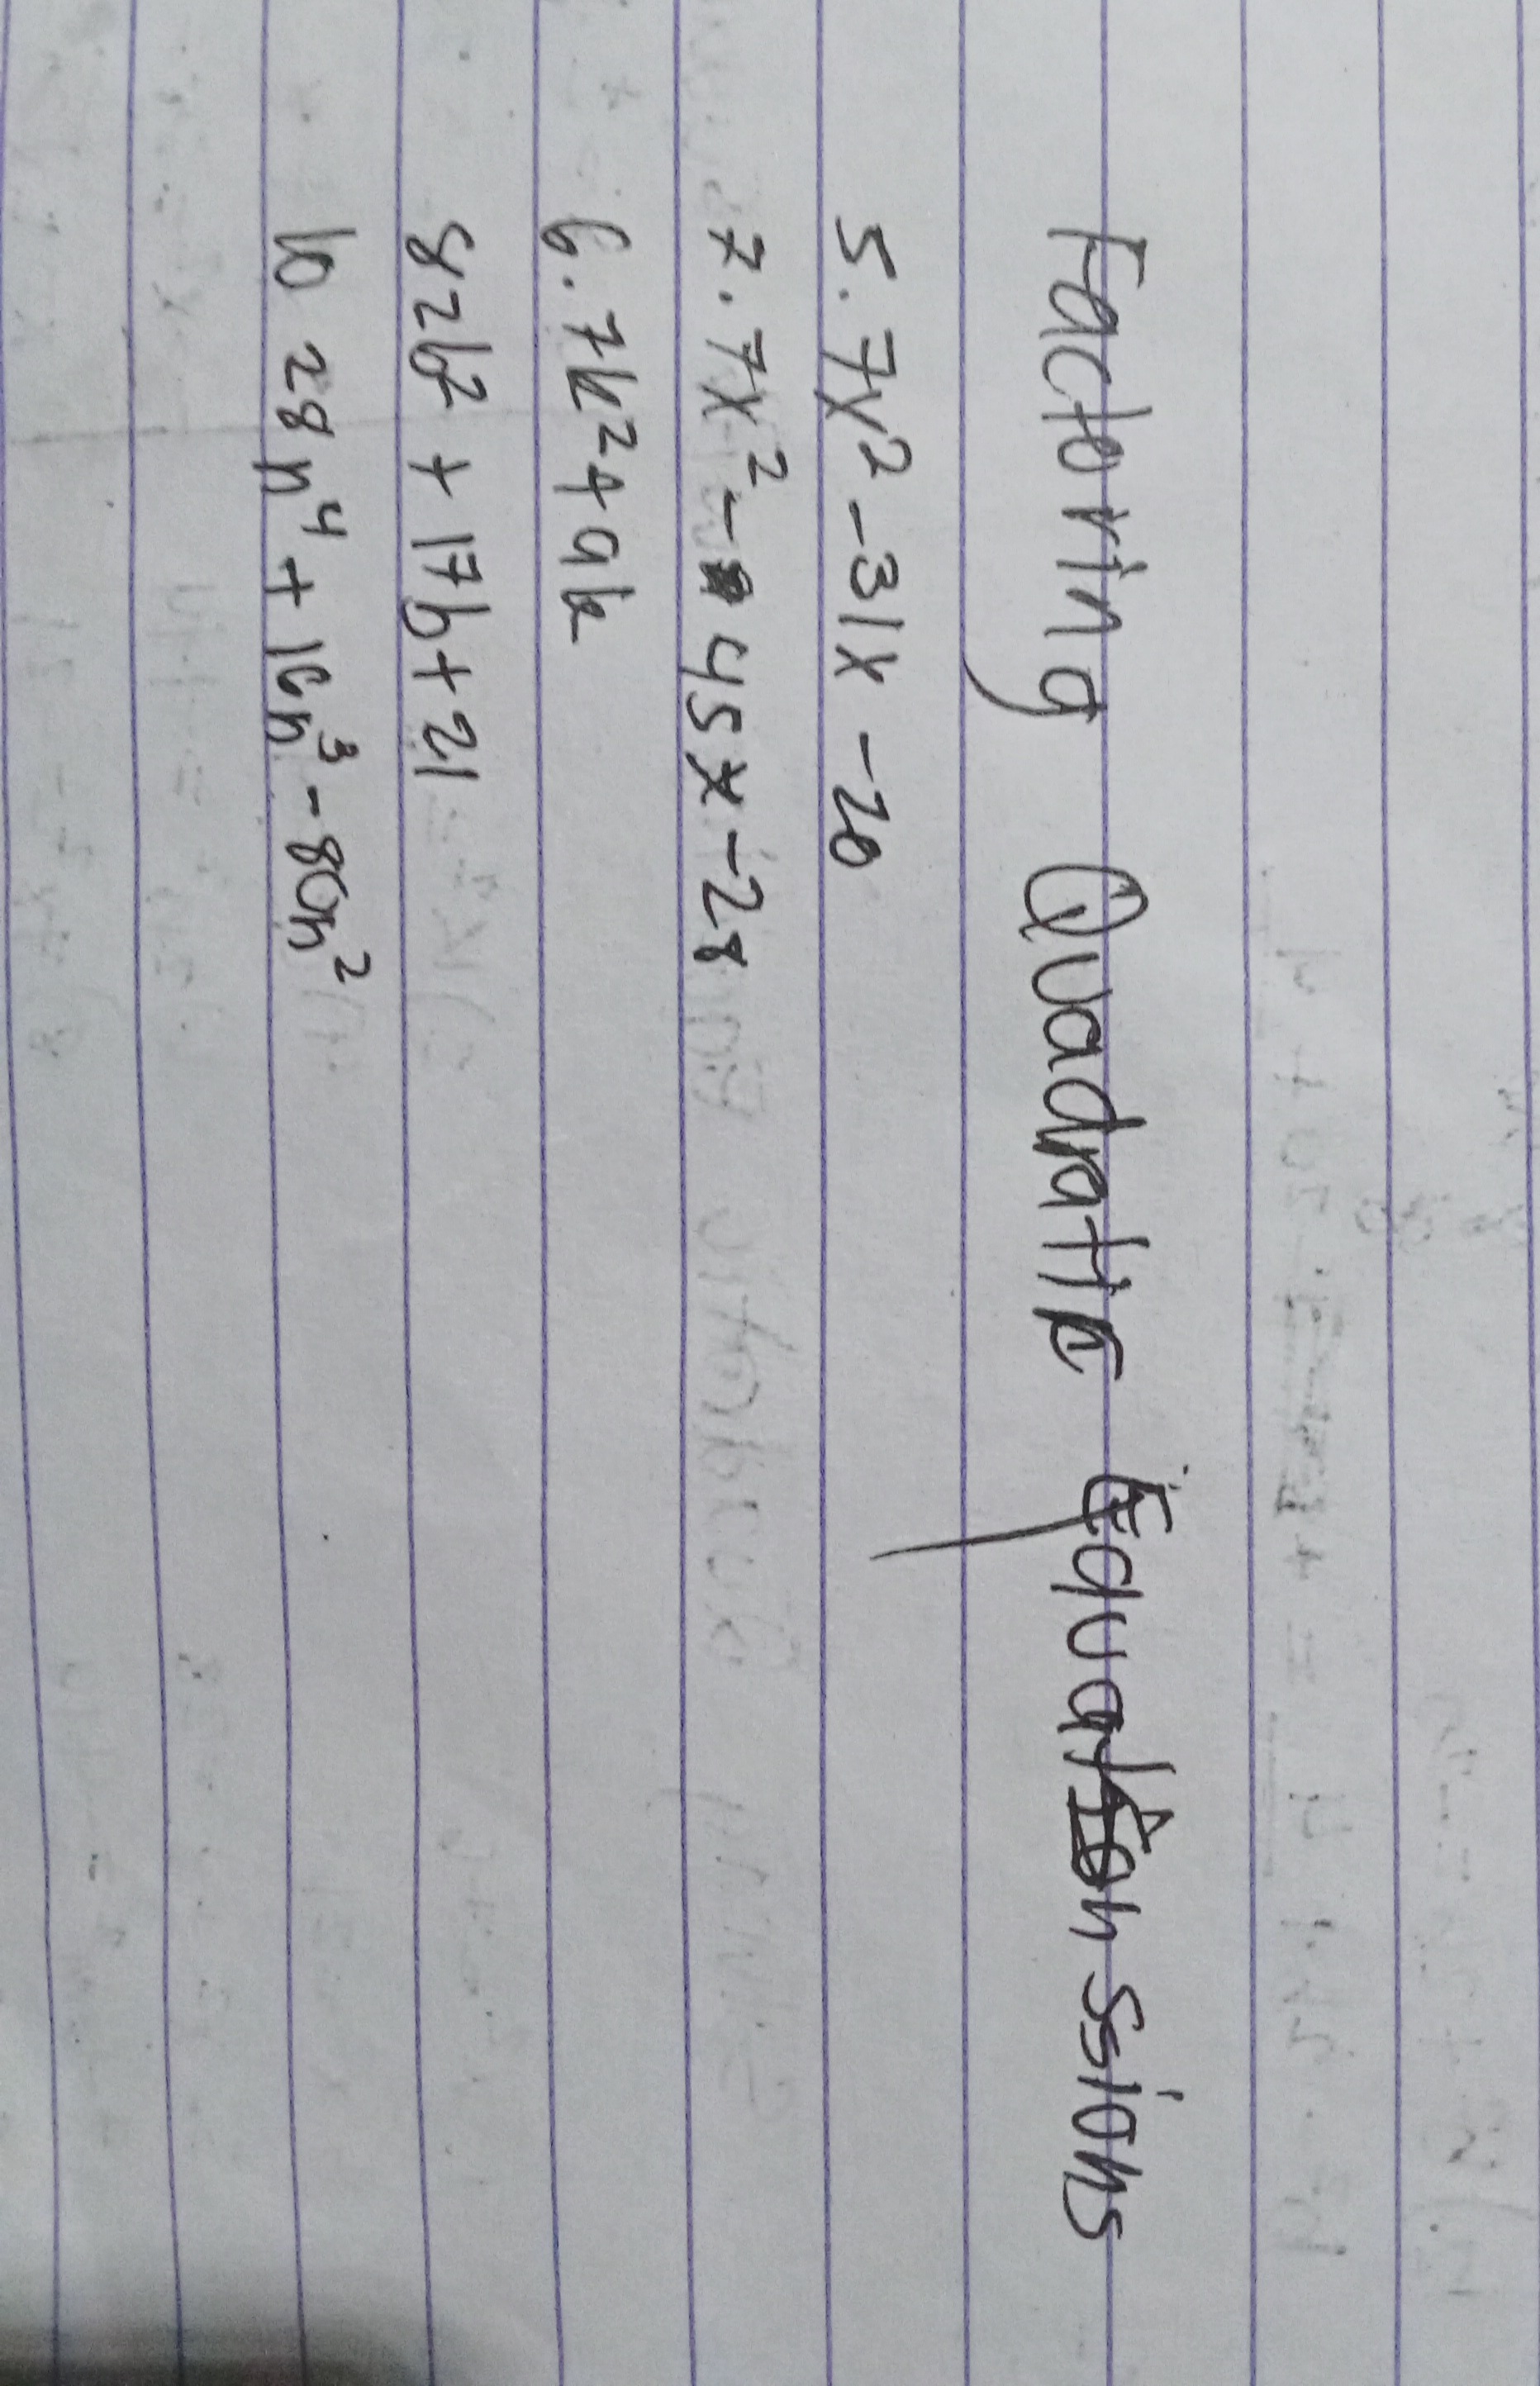 Factoring Quadratic Equation ssions
5. 7x² - 31x - 20
7. 7x² - 45x - 28
6. 7k² + 9k
8 2b² + 17b + 21
10 28n⁴ + 16n³ - 80n²